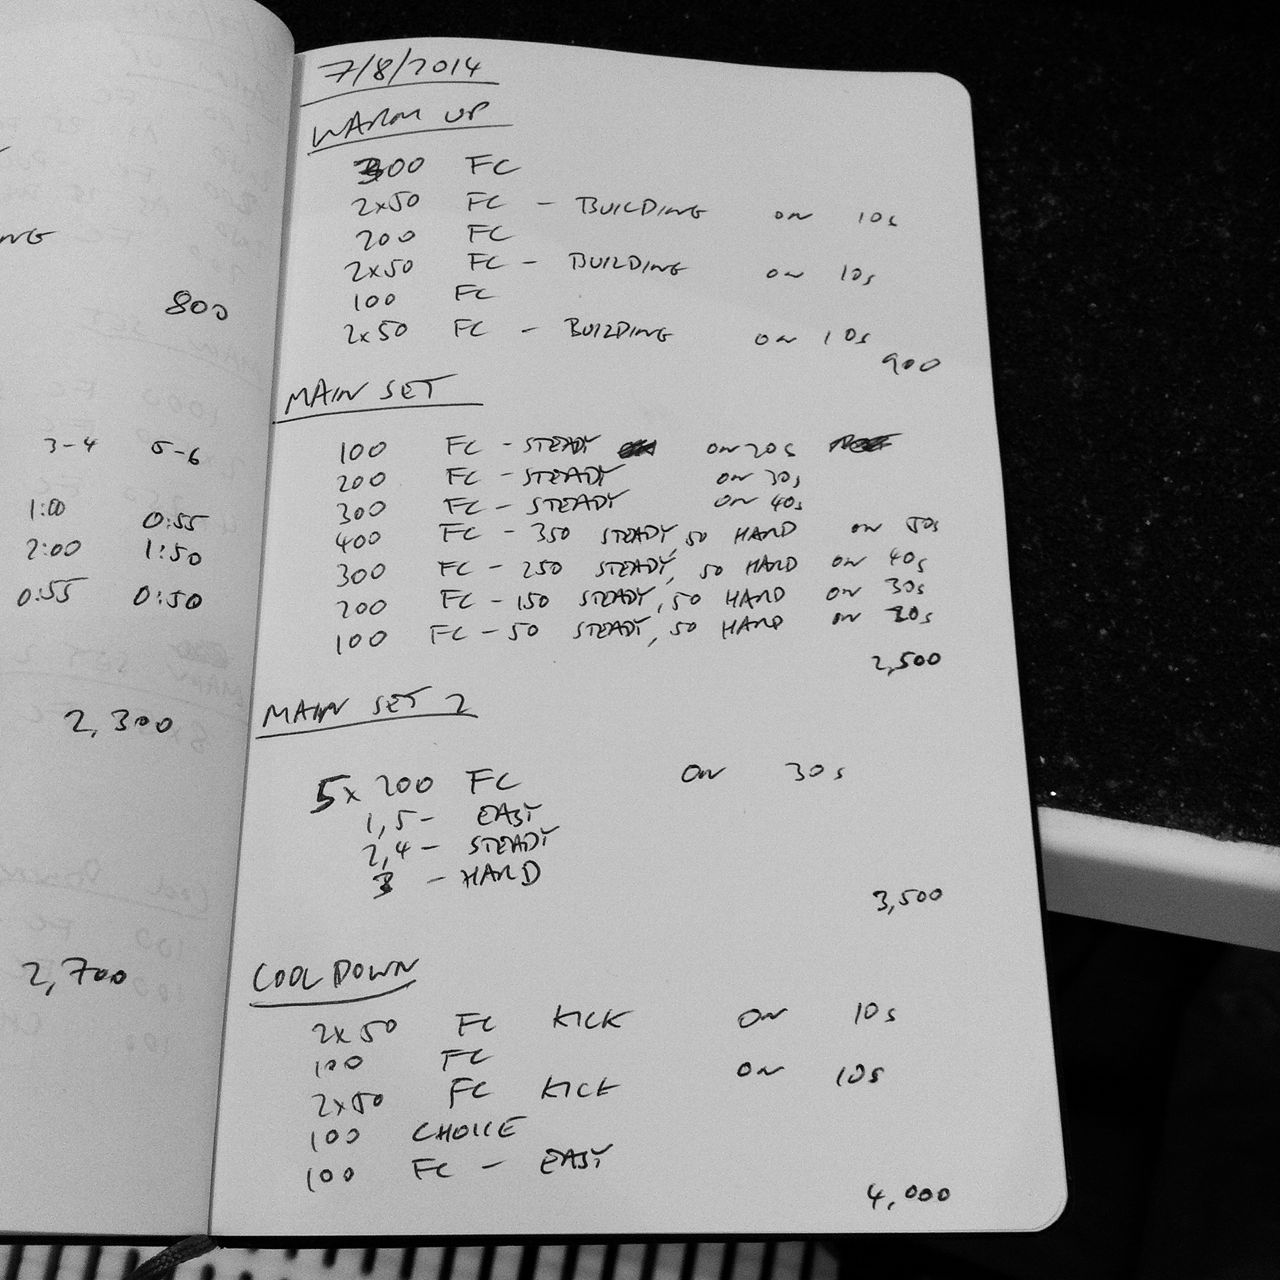 NG
800
3-4 5-6
1:00 0:55
2:00 1:50
0:55 0:50
2,300
2,700
7/8/2014
WARM UP
300 FC
2x50 FC - BUILDING ON 10s
200 FC
2x50 FC - BUILDING ON 10s
100 FC
2x50 FC - BUILDING ON 10s
900
MAIN SET
100 FC - STEADY ON 20s
200 FC - STEADY ON 30s
300 FC - STEADY ON 40s
400 FC - 350 STEADY, 50 HARD ON 50s
300 FC - 250 STEADY, 50 HARD ON 40s
200 FC - 150 STEADY, 50 HARD ON 30s
100 FC - 50 STEADY, 50 HARD ON 20s
2,500
MAIN SET 2
5x 200 FC ON 30s
1,5 - EASY
2,4 - STEADY
3 - HARD
3,500
COOL DOWN
2x50 FC KICK ON 10s
100 FC
2x50 FC KICK ON 10s
100 CHOICE
100 FC - EASY
4,000